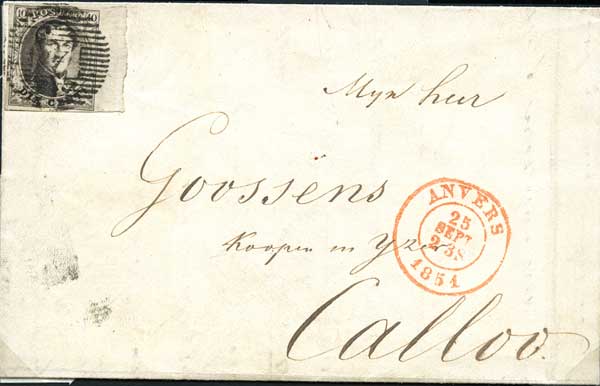 10 POSTES 10
DIX CENT
Myn heer
Goossens
Koopm in Yzer
Calloo.
ANVERS
25
SEPT
1851